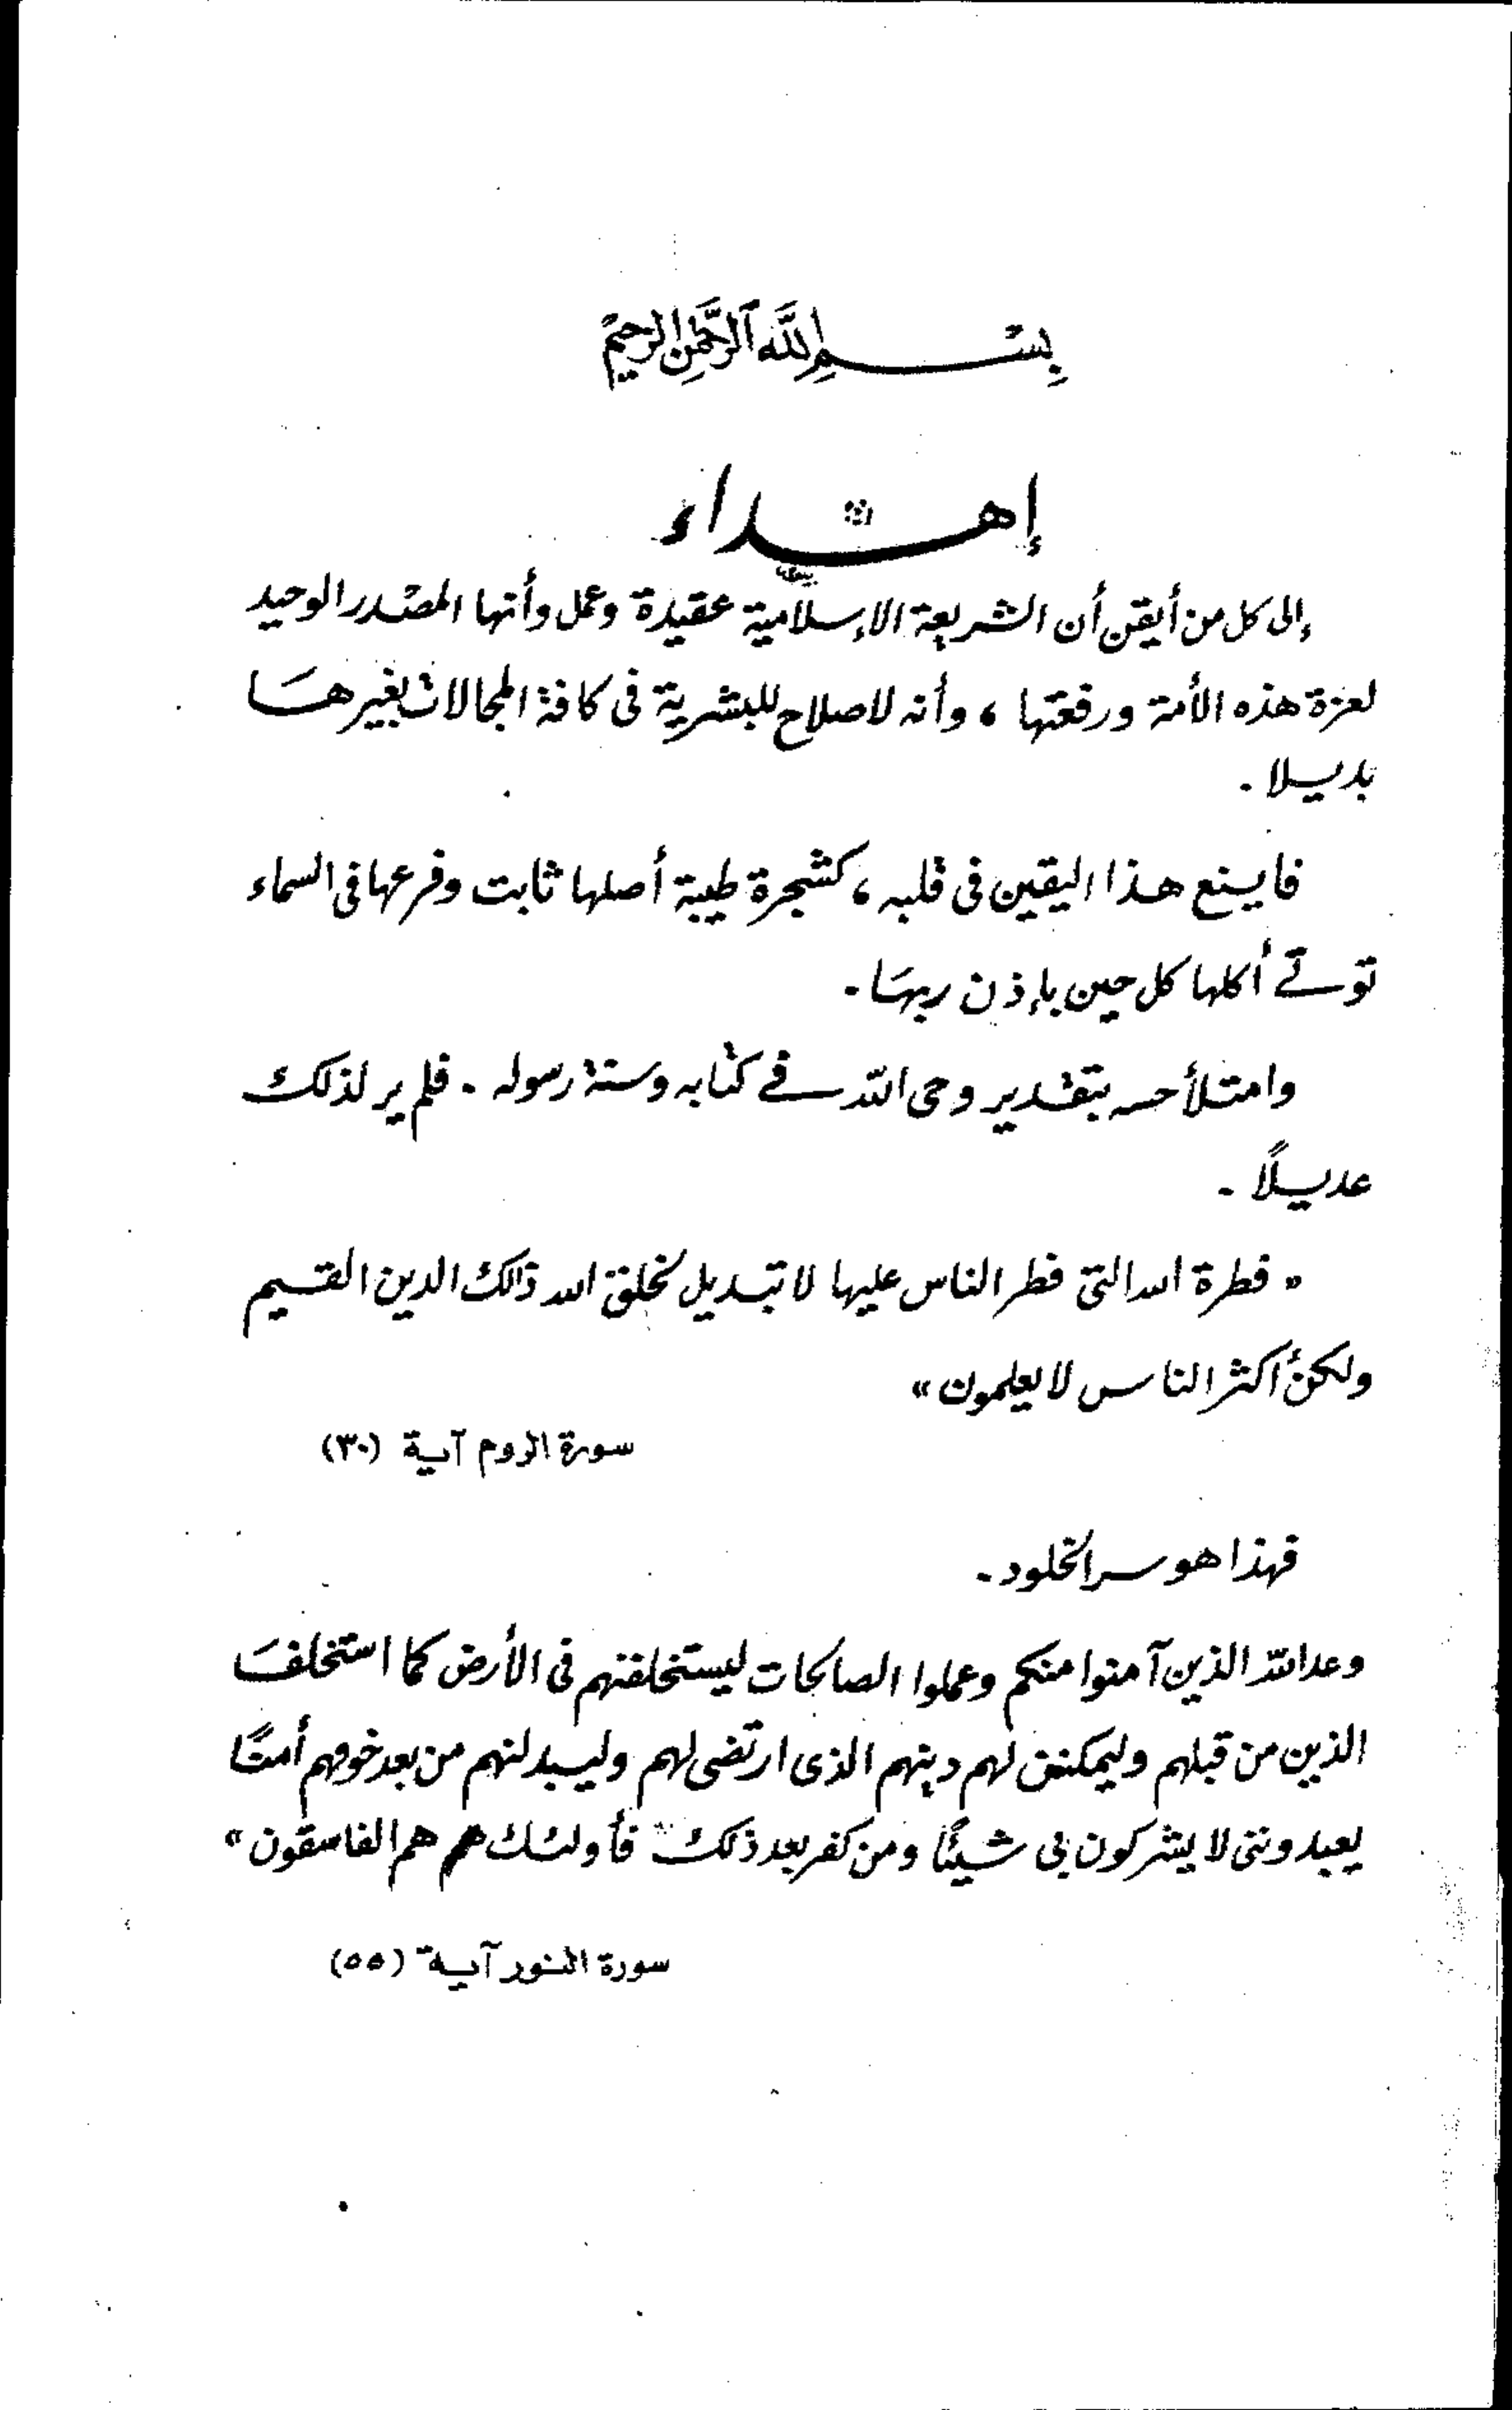 بِسْمِ اللَّهِ الرَّحْمَنِ الرَّحِيمِ
إهداء
إلى كل من أيقن أن الشريعة الإسلامية عقيدة وعمل وأنها المصدر الوحيد
لعزة هذه الأمة ورفعتها ، وأنه لا صلاح للبشرية فى كافة المجالات بغيرها
بديلا .
فاينع هذا اليقين فى قلبه ، كشجرة طيبة أصلها ثابت وفرعها فى السماء
توتي أكلها كل حين بإذن ربها .
وامتلأ حسه بتقدير وحى الله في كتابه وسنة رسوله . فلم ير لذلك
عديلًا .
" فطرة الله التى فطر الناس عليها لا تبديل لخلق الله ذلك الدين القيم
ولكن أكثر الناس لا يعلمون "
سورة الروم آية (٣٠)
فهذا هو سر الخلود .
وعد الله الذين آمنوا منكم وعملوا الصالحات ليستخلفنهم فى الأرض كما استخلف
الذين من قبلهم وليمكنن لهم دينهم الذى ارتضى لهم وليبدلنهم من بعد خوفهم أمنًا
يعبدوننى لا يشركون بى شيئًا ومن كفر بعد ذلك فأولئك هم هم الفاسقون "
سورة النور آية (٥٥)